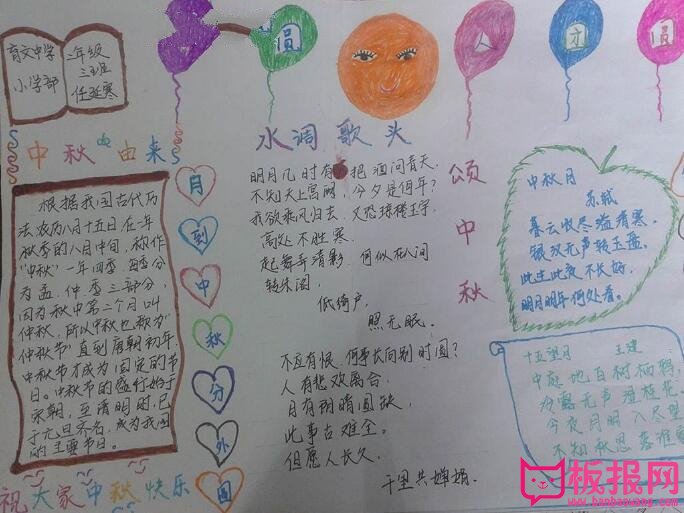 育文中学
小学部
二年级
三班
任延寒
圆
人
方
圆
中秋由来
根据我国古代历
法农历八月十五日在一年
秋季的八月中旬,称作
"中秋"一年四季.四季分
为孟.仲.季三部分,
因为秋中第二个月叫
仲秋,所以中秋也称为
仲秋节"直到唐朝初年.
中秋节才成为固定的节
日。中秋节的盛行始于
宋朝,至清明时,已
于元旦齐名,成为我国
的主要节日。
祝大家中秋快乐
月到中秋分外圆
水调歌头
明月几时有 把酒问青天.
不知天上宫阙,今夕是何年?
我欲乘风归去,又恐琼楼玉宇
高处不胜寒
起舞弄清影 何似在人间
转朱阁,
低绮户,
照无眠.
不应有恨.何事长向别时圆?
人有悲欢离合,
月有阴晴圆缺,
此事古难全。
但愿人长久,
千里共婵娟.
颂中秋
中秋月
苏轼
暮云收尽溢清寒.
银汉无声转玉盘。
此生此夜不长好,
明月明年何处看。
十五望月 王建
中庭地白树栖鸦,
冷露无声湿桂花.
今夜月明人尽望
不知秋思落谁
板报网
www.banbaowang.com